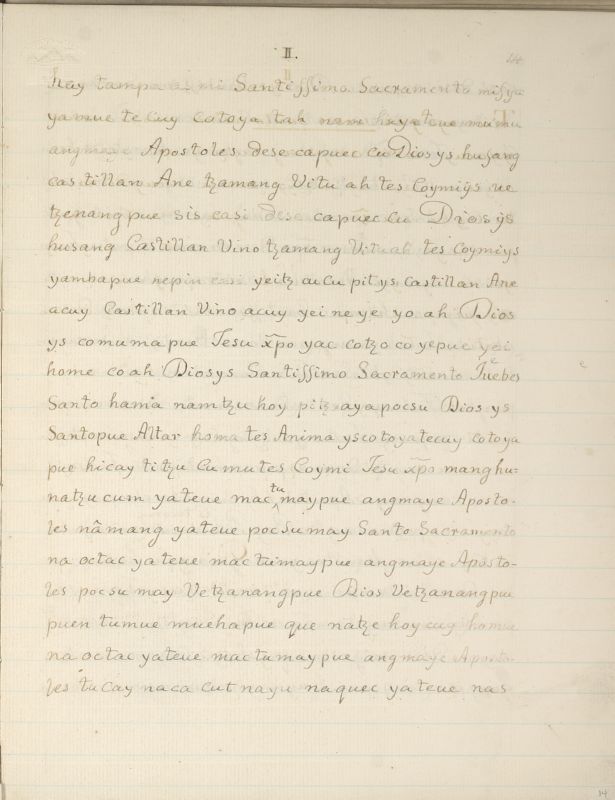 II.
hay tampa mi Santissimo Sacramento misya
yamue te cuy cotoya tah nem huyateue mumu
angmaye Apostoles dese capuec cu Diosys husang
castillan Ane tzamang Vitu ah tes Coymiÿs ue
tzenangpue sis casi dese capuec cu Diosÿs
husang Castillan Vino tzamang Vitu ah tes Coymiys
yambapue nepin casi yeitz cucu pit ys Castillan Ane
acuy Castillan Vino acuy yei ne ye yo ah Dios
ys comuma pue Jesu xp̃o yac cotzo co yepue yei
home co ah Diosys Santissimo Sacramento Juebes
Santo hama namtzu hoy pitzayapocsu Dios ys
Santopue Altar homa tes Anima yscotoyatecuy cotoya
pue hicay titzu Cumutes Coymi Jesu xp̃o manghu=
natzu cum yateue mac tu maypue angmaye Aposto-
les nâmang yateue pocsumay Santo Sacramento
na octac yateue mactumaypue angmaye Aposto-
les pocsu may Vetzanangpue Dios Vetzanangpue
puen tumue muehapue que natze hoy cuy homue
na octac yateue mactumaypue angmaye Aposto-
les tucay naca cut nayu naquec yateue nas
14